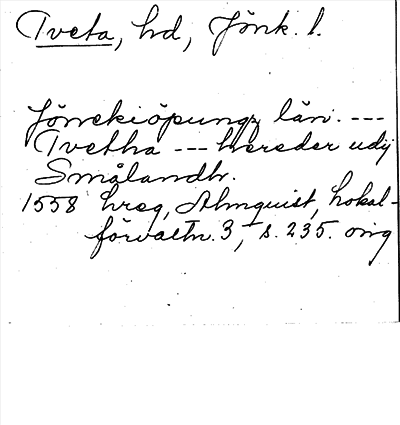 Tveta, hd, Jönk. l.
Jönekiöpungz län. ---
Tvetha --- hæreder udij
Smålandh.
1558 hreg, Almquist, Lokal-
förvaltn. 3, s. 235. orig